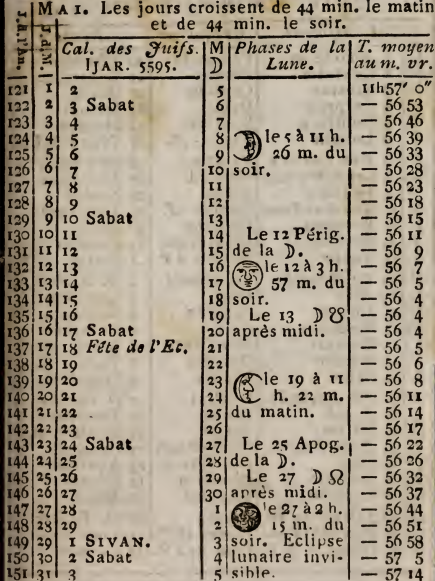 MAI. Les jours croissent de 44 min. le matin
et de 44 min. le soir.
J. de l'An. J. d. M. Cal. des Juifs. IJAR. 5595. M ☽ Phases de la Lune. T. moyen au m. vr.
121 1 2 5 11h57′ 0″
122 2 3 Sabat 6 — 56 53
123 3 4 7 — 56 46
124 4 5 8 le 5 à 11 h. — 56 39
125 5 6 9 26 m. du — 56 33
126 6 7 10 soir. — 56 28
127 7 8 11 — 56 23
128 8 9 12 — 56 18
129 9 10 Sabat 13 — 56 15
130 10 11 14 Le 12 Périg. — 56 11
131 11 12 15 de la ☽. — 56 9
132 12 13 16 le 12 à 3 h. — 56 7
133 13 14 17 57 m. du — 56 5
134 14 15 18 soir. — 56 4
135 15 16 19 Le 13 ☽ ☋ — 56 4
136 16 17 Sabat 20 après midi. — 56 4
137 17 18 Fête de l'Ec. 21 — 56 5
138 18 19 22 — 56 6
139 19 20 23 le 19 à 11 — 56 8
140 20 21 24 h. 22 m. — 56 11
141 21 22 25 du matin. — 56 14
142 22 23 26 — 56 17
143 23 24 Sabat 27 Le 25 Apog. — 56 22
144 24 25 28 de la ☽. — 56 26
145 25 26 29 Le 27 ☽ ☊ — 56 32
146 26 27 30 après midi. — 56 37
147 27 28 1 le 27 à 2 h. — 56 44
148 28 29 2 15 m. du — 56 51
149 29 1 SIVAN. 3 soir. Eclipse — 56 58
150 30 2 Sabat 4 lunaire invi- — 57 5
151 31 3 5 sible. — 57 14